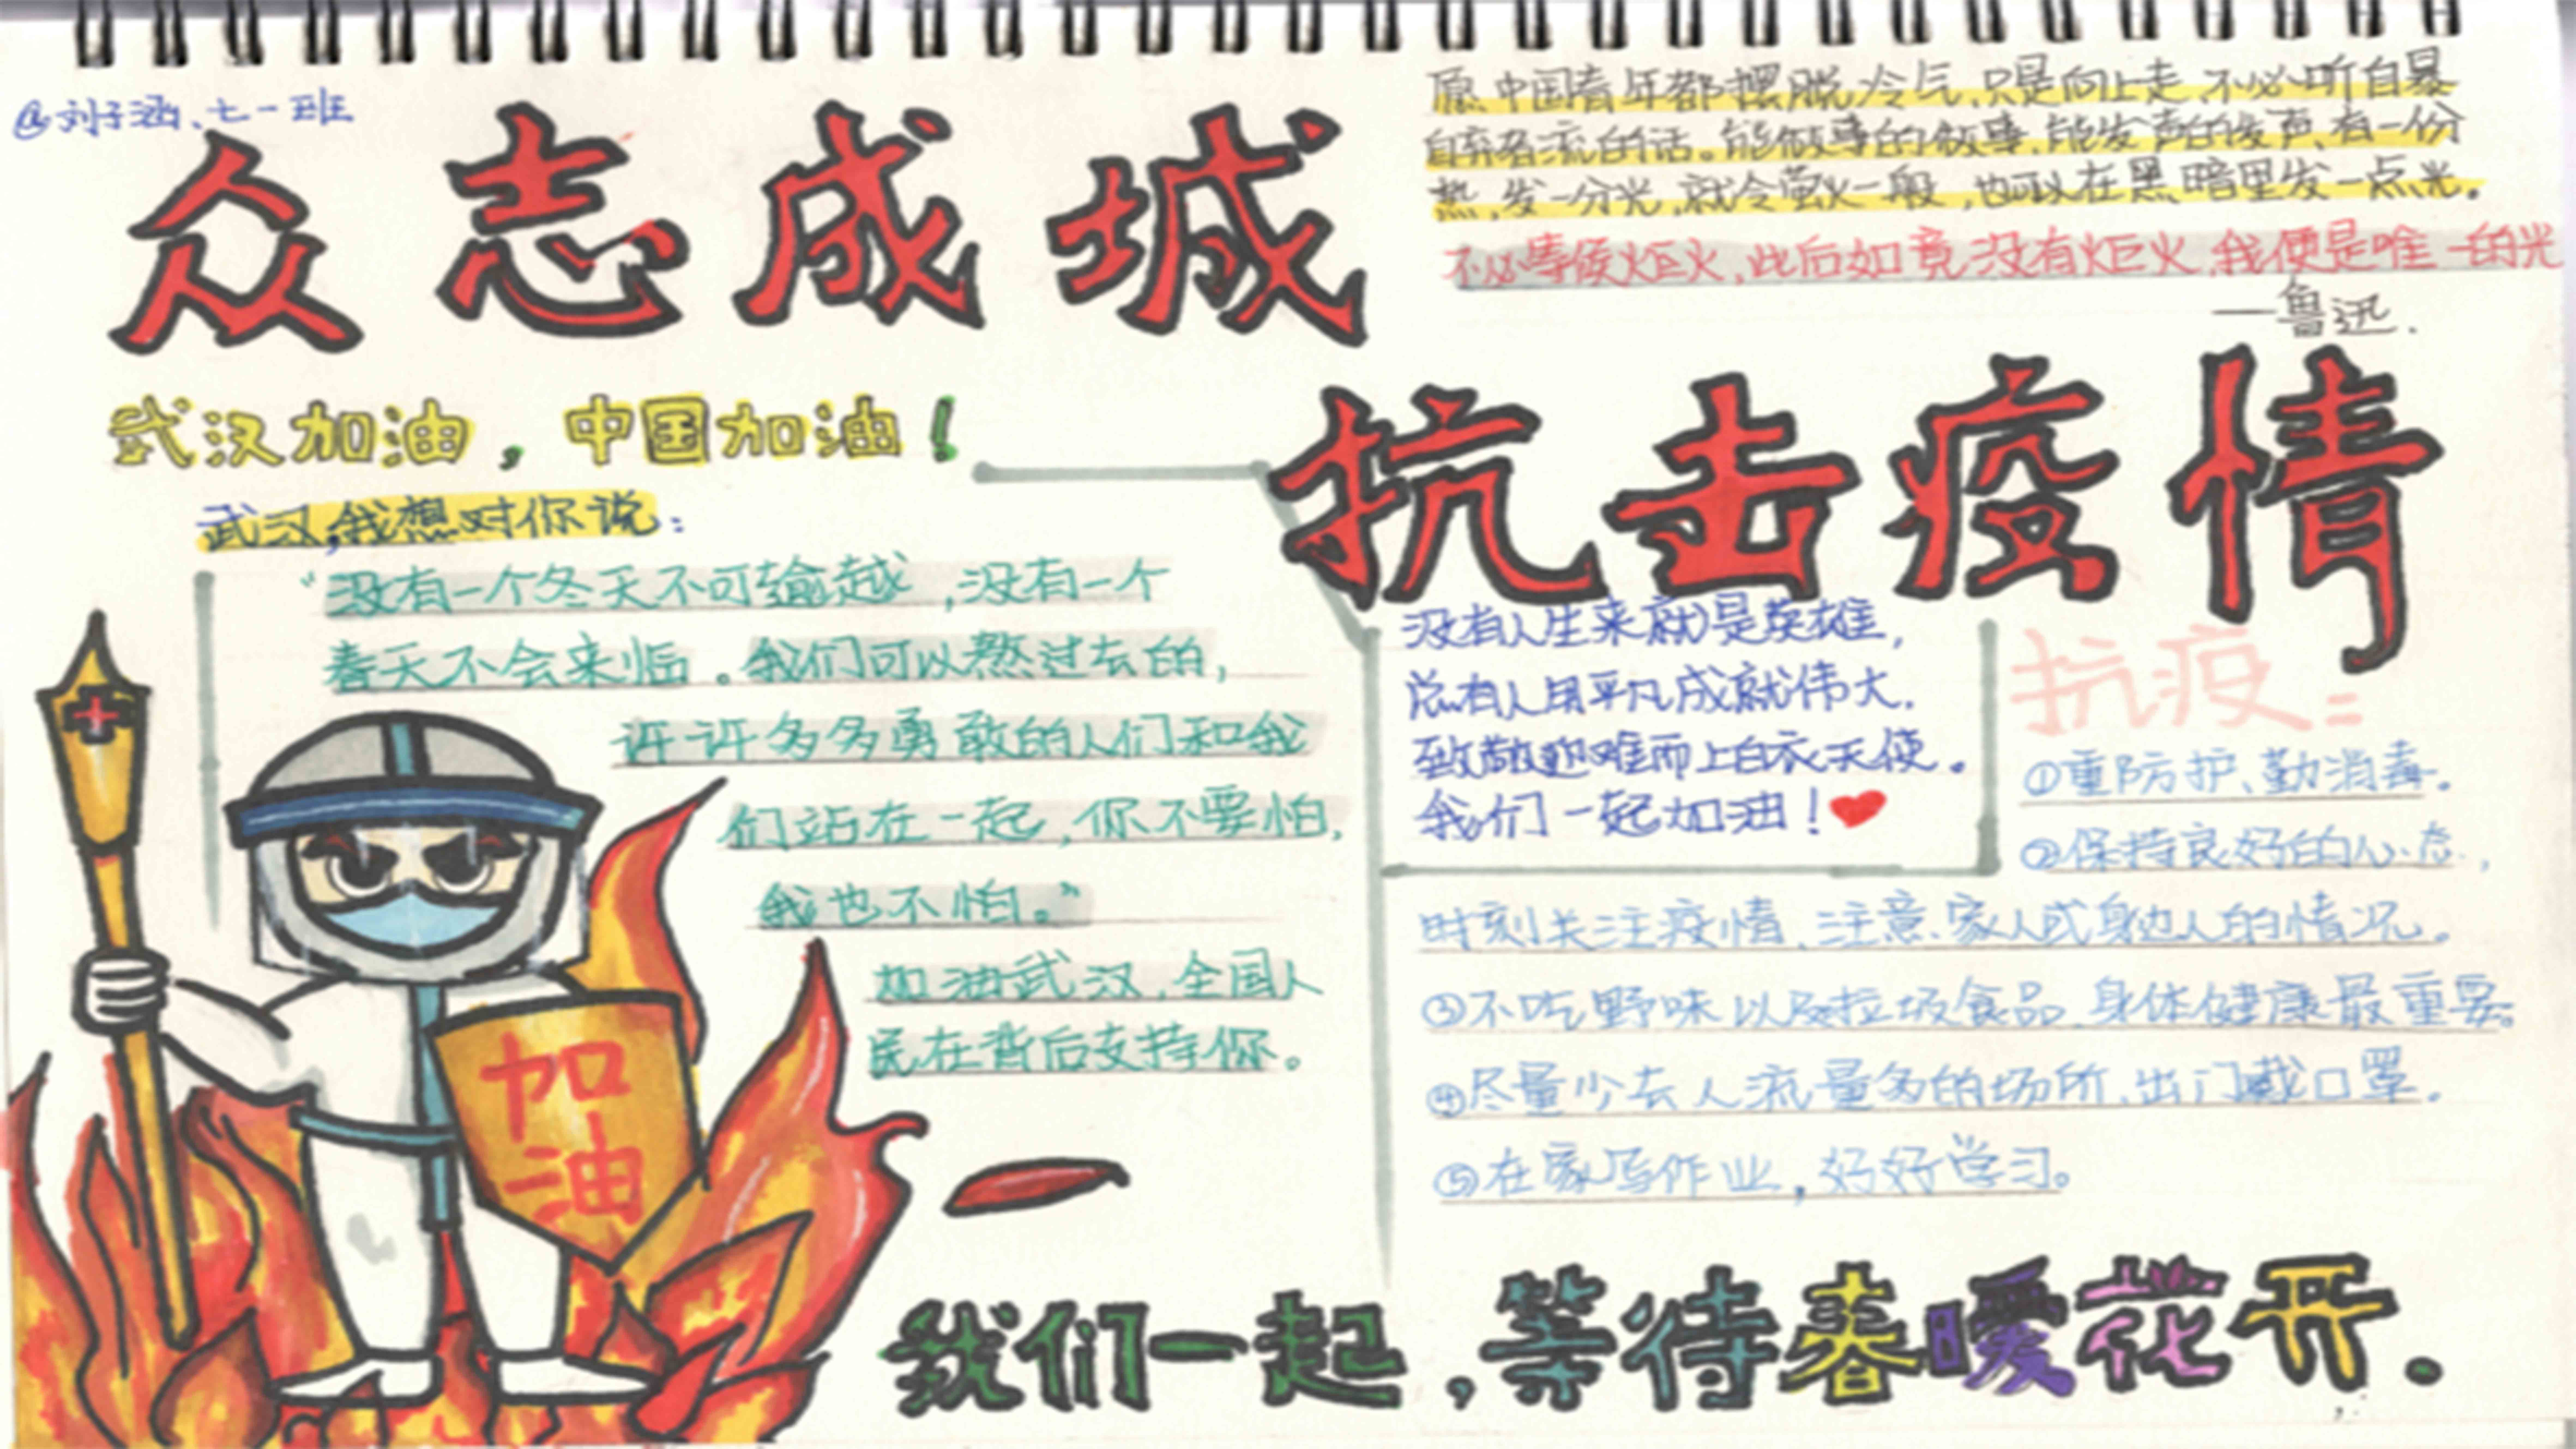 @刘子涵、七一班
众志成城
原中国青年都摆脱冷气,只是向上走,不必听自暴
自弃者流的话。能做事的做事,能发声的发声,有一份
热,发一分光,就令萤火一般,也可以在黑暗里发一点光。
不必等候炬火,此后如竟没有炬火,我便是唯一的光
—鲁迅.
抗击疫情
武汉加油,中国加油!
武汉,我想对你说:
“没有一个冬天不可逾越,没有一个
春天不会来临。我们可以熬过去的,
许许多多勇敢的人们和我
们站在一起,你不要怕,
我也不怕。”
加油武汉,全国人
民在背后支持你。
没有人生来就是英雄,
总有人用平凡成就伟大.
致敬迎难而上白衣天使。
我们一起加油!
抗疫:
①重防护、勤消毒。
②保持良好的心态,
时刻关注疫情、注意家人或身边人的情况。
③不吃野味以及垃圾食品,身体健康最重要。
④尽量少去人流量多的场所,出门戴口罩。
⑤在家写作业,好好学习。
加
油
我们一起,等待春暖花开.